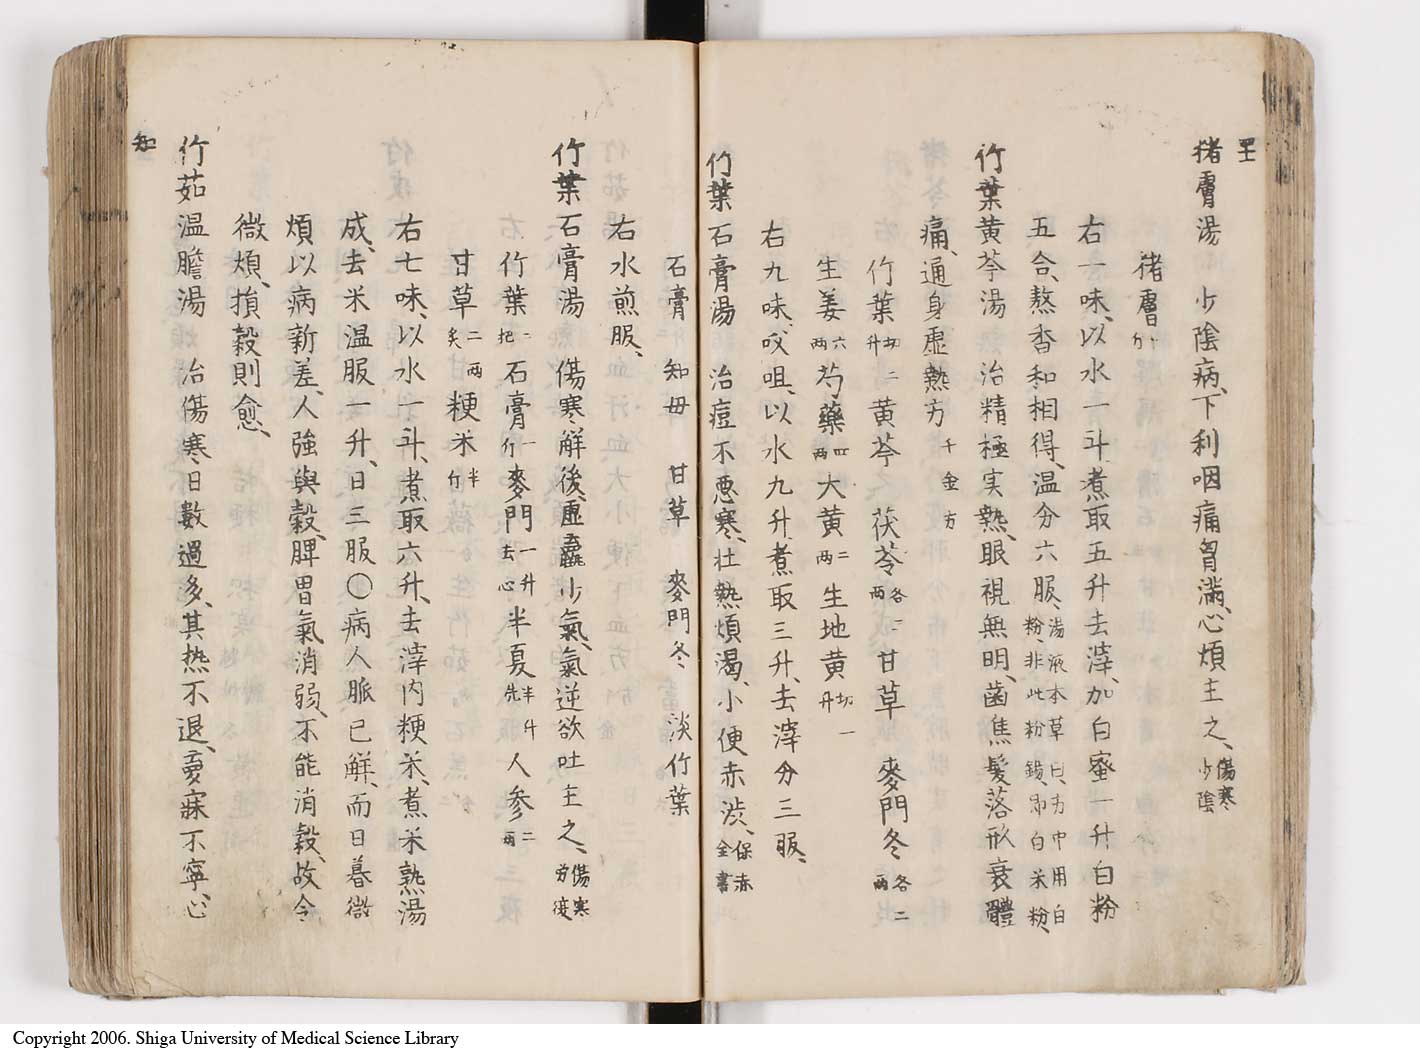 猪膚湯 少陰病、下利咽痛胷滿、心煩主之、傷寒少陰
猪膚 一斤
右一味、以水一斗、煮取五升去滓、加白蜜一升白粉
五合、熬香和相得、温分六服、湯液本草曰、方中用白粉非此粉錫、即白米粉、
竹葉黄芩湯 治精極実熱、眼視無明、齒焦髮落形衰體
痛、通身虚熱方 千金方
竹葉 切二升 黄芩 茯苓 各二両 甘草 麥門冬 各二両
生姜 六両 芍藥 四両 大黄 二両 生地黄 切一升
右九味、㕮咀、以水九升煮取三升、去滓分三服、
竹葉石膏湯 治痘不悪寒、壮熱煩渴、小便赤渋、保赤全書
石膏 知母 甘草 麥門冬 淡竹葉
右水煎服、
竹葉石膏湯 傷寒解後、虚羸少氣、氣逆欲吐主之、傷寒労復
竹葉 二把 石膏 一斤 麥門 一升去心 半夏 半升洗 人参 二両
甘草 二両炙 粳米 半斤
右七味、以水一斗、煮取六升、去滓内粳米、煮米熟湯
成、去米温服一升、日三服〇病人脈已解、而日暮微
煩以病新差、人強與穀、脾胃氣消弱、不能消穀、故令
微煩、損穀則愈、
竹茹温膽湯 治傷寒日數過多、其热不退、夢寐不寧、心